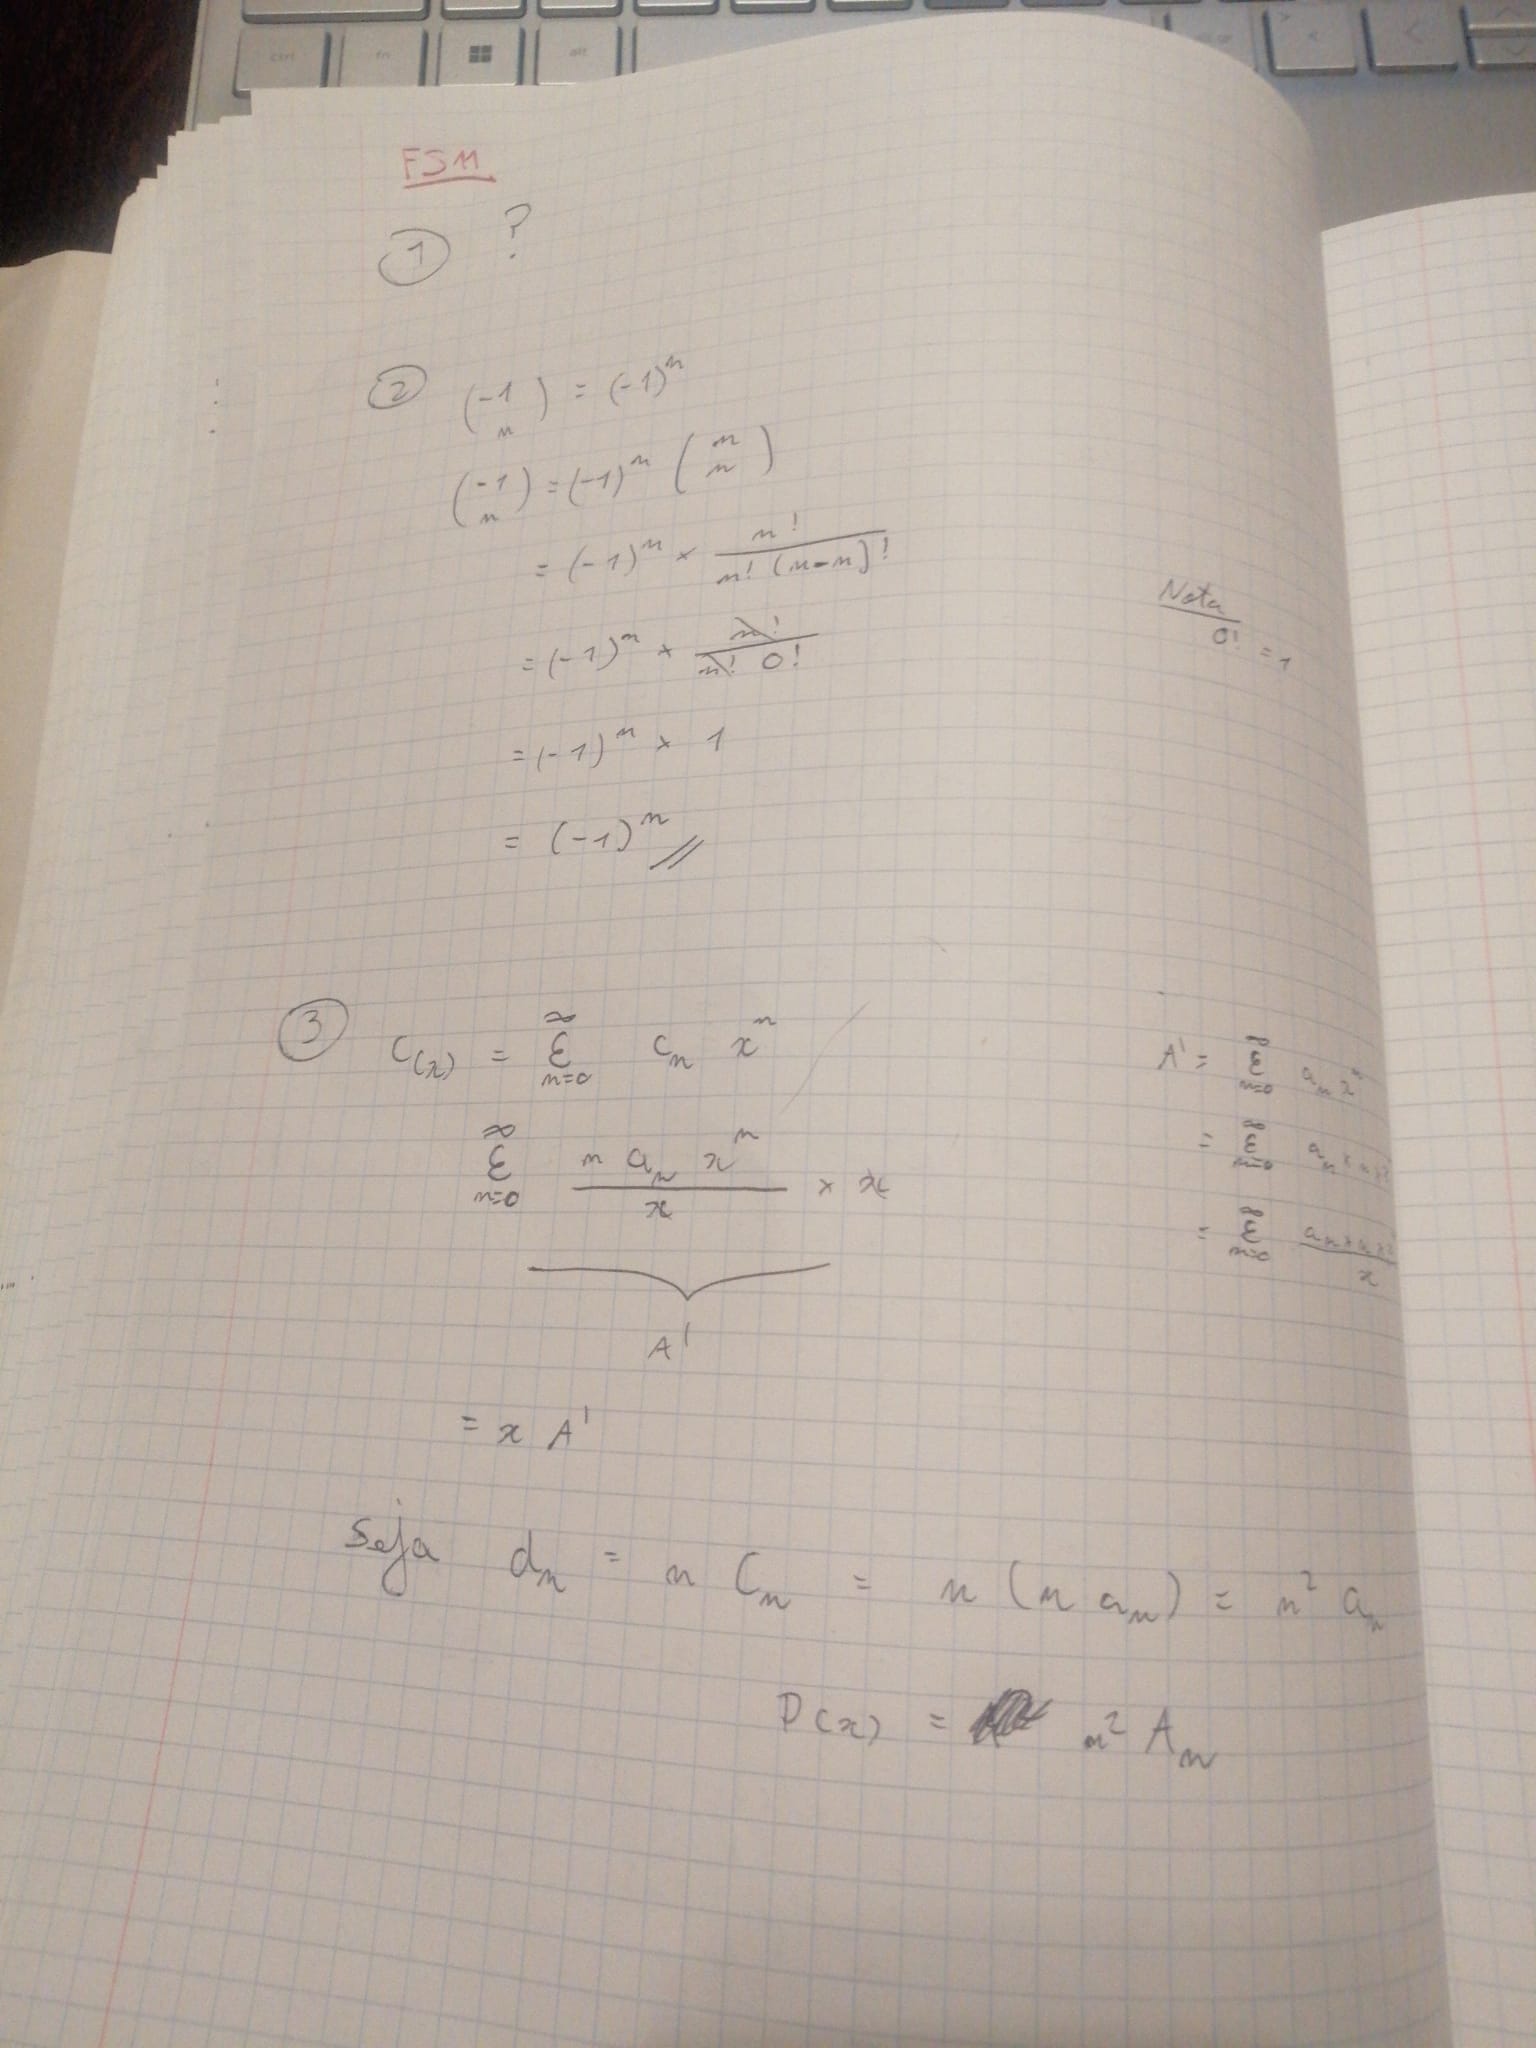 Ctrl fn alt
FSM
① ?
② (-1 n) = (-1)^n
(-1 n) = (-1)^n (n n)
= (-1)^n × n! / n! (n-n)!
= (-1)^n × n! / n! 0!
Nota
0! = 1
= (-1)^n × 1
= (-1)^n //
③ C(x) = Σ n=0 ∞ c_n x^n
Σ n=0 ∞ n a_n x^n / x × x
A'
= x A'
A' = Σ n=0 ∞ a_n x^n
= Σ n=0 ∞ a_n ×
= Σ n=0 ∞ / x
Seja d_n = n C_n = n (n a_n) = n² a_n
D(x) = n² A_n